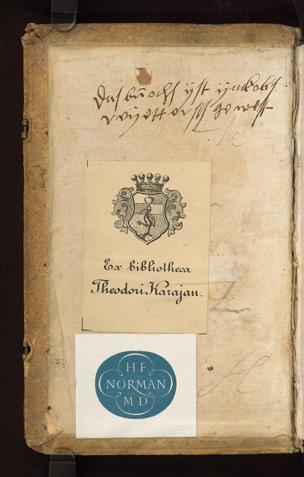 Das buoch yst yakobs
Ex bibliotheca
Theodori Karajan.
HF
NORMAN
MD